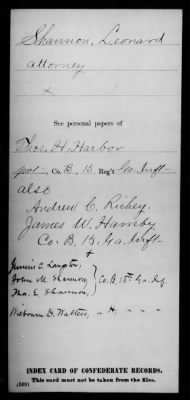 Shannon, Leonard
attorney
x
See personal papers of
Thos. H. Harbor
pvt - Co. B, 15 Reg't Ga. Inft -
also
Andrew C. Richey.
James W. Hamby
Co. B, 15, Ga. Inft -
+
Jennie C. Langston,
John M. Shannon,
Tha. E. Shannon,
Co. B, 15th Ga. Inf.
D. Watters, " H, "
INDEX CARD OF CONFEDERATE RECORDS.
This card must not be taken from the files.
(589)